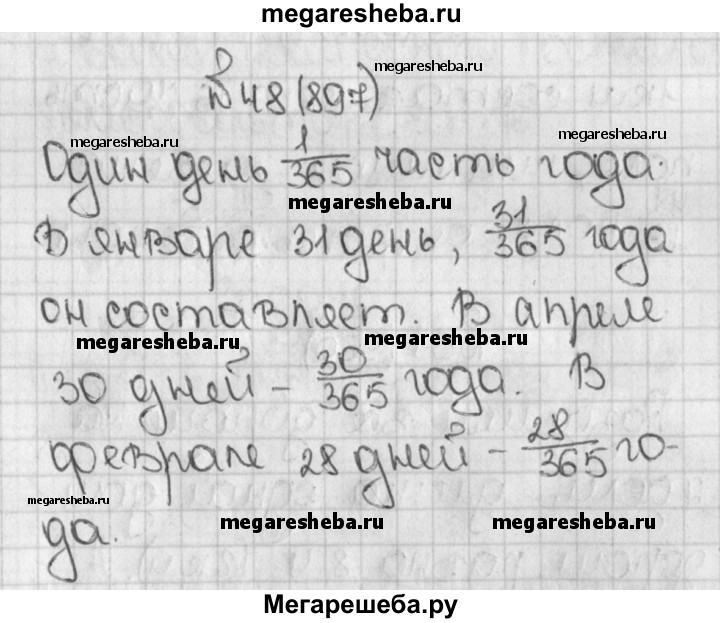 megaresheba.ru
№48 (897)
megaresheba.ru
megaresheba.ru
Один день 1/365 часть года.
megaresheba.ru
В январе 31 день, 31/365 года
он составляет. В апреле
megaresheba.ru
megaresheba.ru
30 дней - 30/365 года. В
феврале 28 дней - 28/365 го-
megaresheba.ru
да.
megaresheba.ru
megaresheba.ru
Мегарешеба.ру